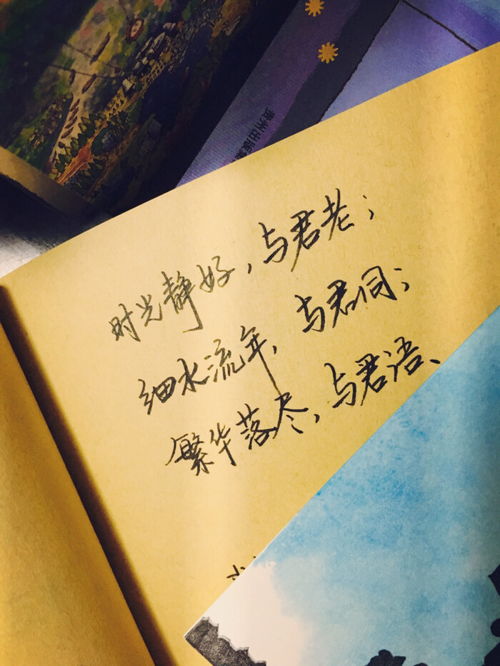 时光静好，与君老；
细水流年，与君同；
繁华落尽，与君语、